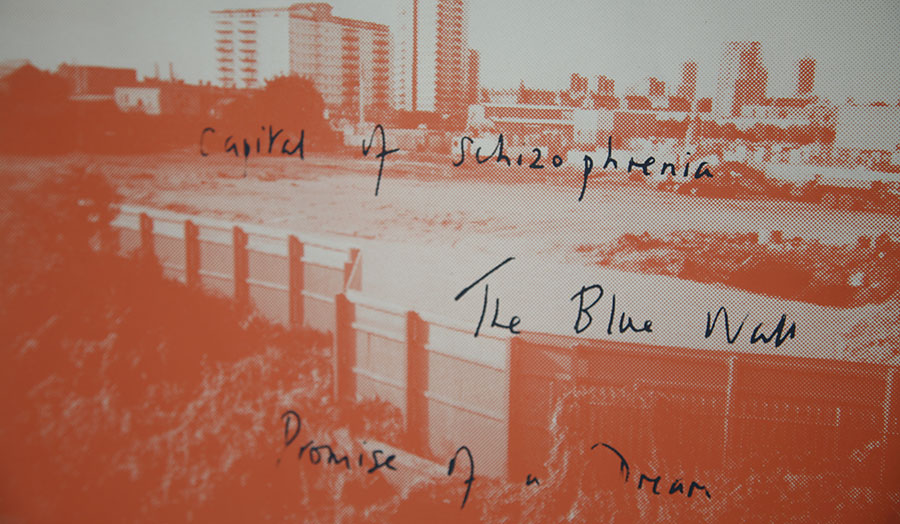 Capital of Schizophrenia
The Blue Wall
Promise of a Dream